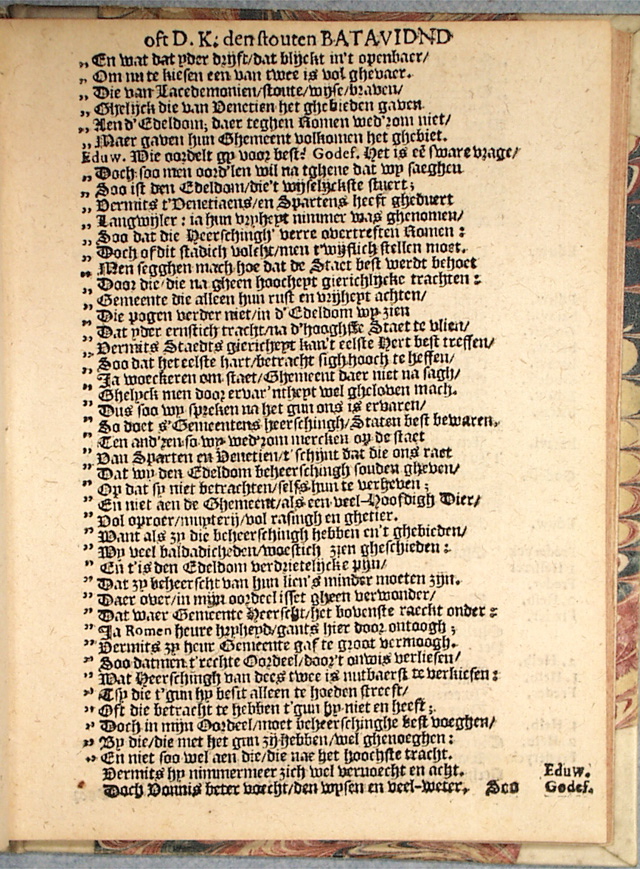 oft D. K. den stouten BATAVIDND
„ En wat dat yder drijft/dat blijckt in't openbaer/
„ Om nu te kiesen een van twee is vol ghevaer.
„ Die van Lacedemonien/stoute/wijse/braven/
„ Ghelijck die van Venetien het ghebieden gaven
„ Aen d'Edeldom; daer teghen Romen wed'rom niet/
„ Maer gaven hun Ghemeent volkomen het ghebiet.
Eduw. Wie oordelt gy voor best? Godef. Het is eē sware vrage/
„ Doch soo men oord'len wil na tghene dat wy saeghen
„ Soo ist den Edeldom/die't wijselijckste stuert;
„ Vermits t'Venetiaens/en Spartens heeft gheduert
„ Langwijler: ia hun vryheyt nimmer was ghenomen/
„ Soo dat die Heerschingh' verre overtreften Romen:
„ Doch of dit stadich volcht/men t'wijflich stellen moet.
„ Men segghen mach hoe dat de Staet best werdt behoet
„ Door die/die na gheen hoocheyt gierichlijcke trachten:
„ Gemeente die alleen hun rust en vrijheyt achten/
„ Die pogen verder niet/in d'Edeldom wy zien
„ Dat yder ernstich tracht/na d'hooghste Staet te vlien/
„ Vermits Staedts giericheyt kan't eelste Hert best treffen/
„ Soo dat het eelste hart/betracht sigh hooch te heffen/
„ Ja woeckeren om staet/Ghemeent daer niet na sagh/
„ Ghelyck men door ervar'ntheyt wel gheloven mach.
„ Dus soo wy spreken na het gun ons is ervaren/
„ So doet s'Gemeentens heerschingh/Staten best bewaren.
„ Ten and'ren so wy wed'rom mercken op de staet
„ Van Sparten en Venetien/t'schijnt dat die ons raet
„ Dat wy den Edeldom beheerschingh souden gheven/
„ Op dat sy niet betrachten/selfs hun te verheven;
„ En niet aen de Ghemeent/als een veel-Hoofdigh Dier/
„ Vol oproer/muyterij/vol rasingh en ghetier.
„ Want als zy die beheerschingh hebben en't ghebieden/
„ Wy veel baldadicheden/woestich zien gheschieden:
„ En t'is den Edeldom verdrietelijcke pijn/
„ Dat zy beheerscht van hun lien's minder moeten zijn.
„ Daer over/in mijn oordeel isset gheen verwonder/
„ Dat waer Gemeente Heerscht/het bovenste raeckt onder:
„ Ja Romen heure vryheyd/gants hier door ontoogh;
„ Vermits zy heur Gemeente gaf te groot vermoogh.
„ Soo datmen t'rechte Oordeel/door't onwis verliesen/
„ Wat Heerschingh van dees twee is nutbaerst te verkiesen:
„ Tsy die t'gun hy besit alleen te hoeden streeft/
„ Oft die betracht te hebben t'gun hy niet en heeft;
„ Doch in mijn Oordeel/moet beheerschinghe best voeghen/
„ By die/die met het gun zij hebben/wel ghenoeghen:
„ En niet soo wel aen die/die nae het hoochste tracht.
Vermits hy nimmermeer zich wel vernoecht en acht. Eduw.
Doch Vonnis beter voecht/den wysen en veel-weter. Soo Godef.